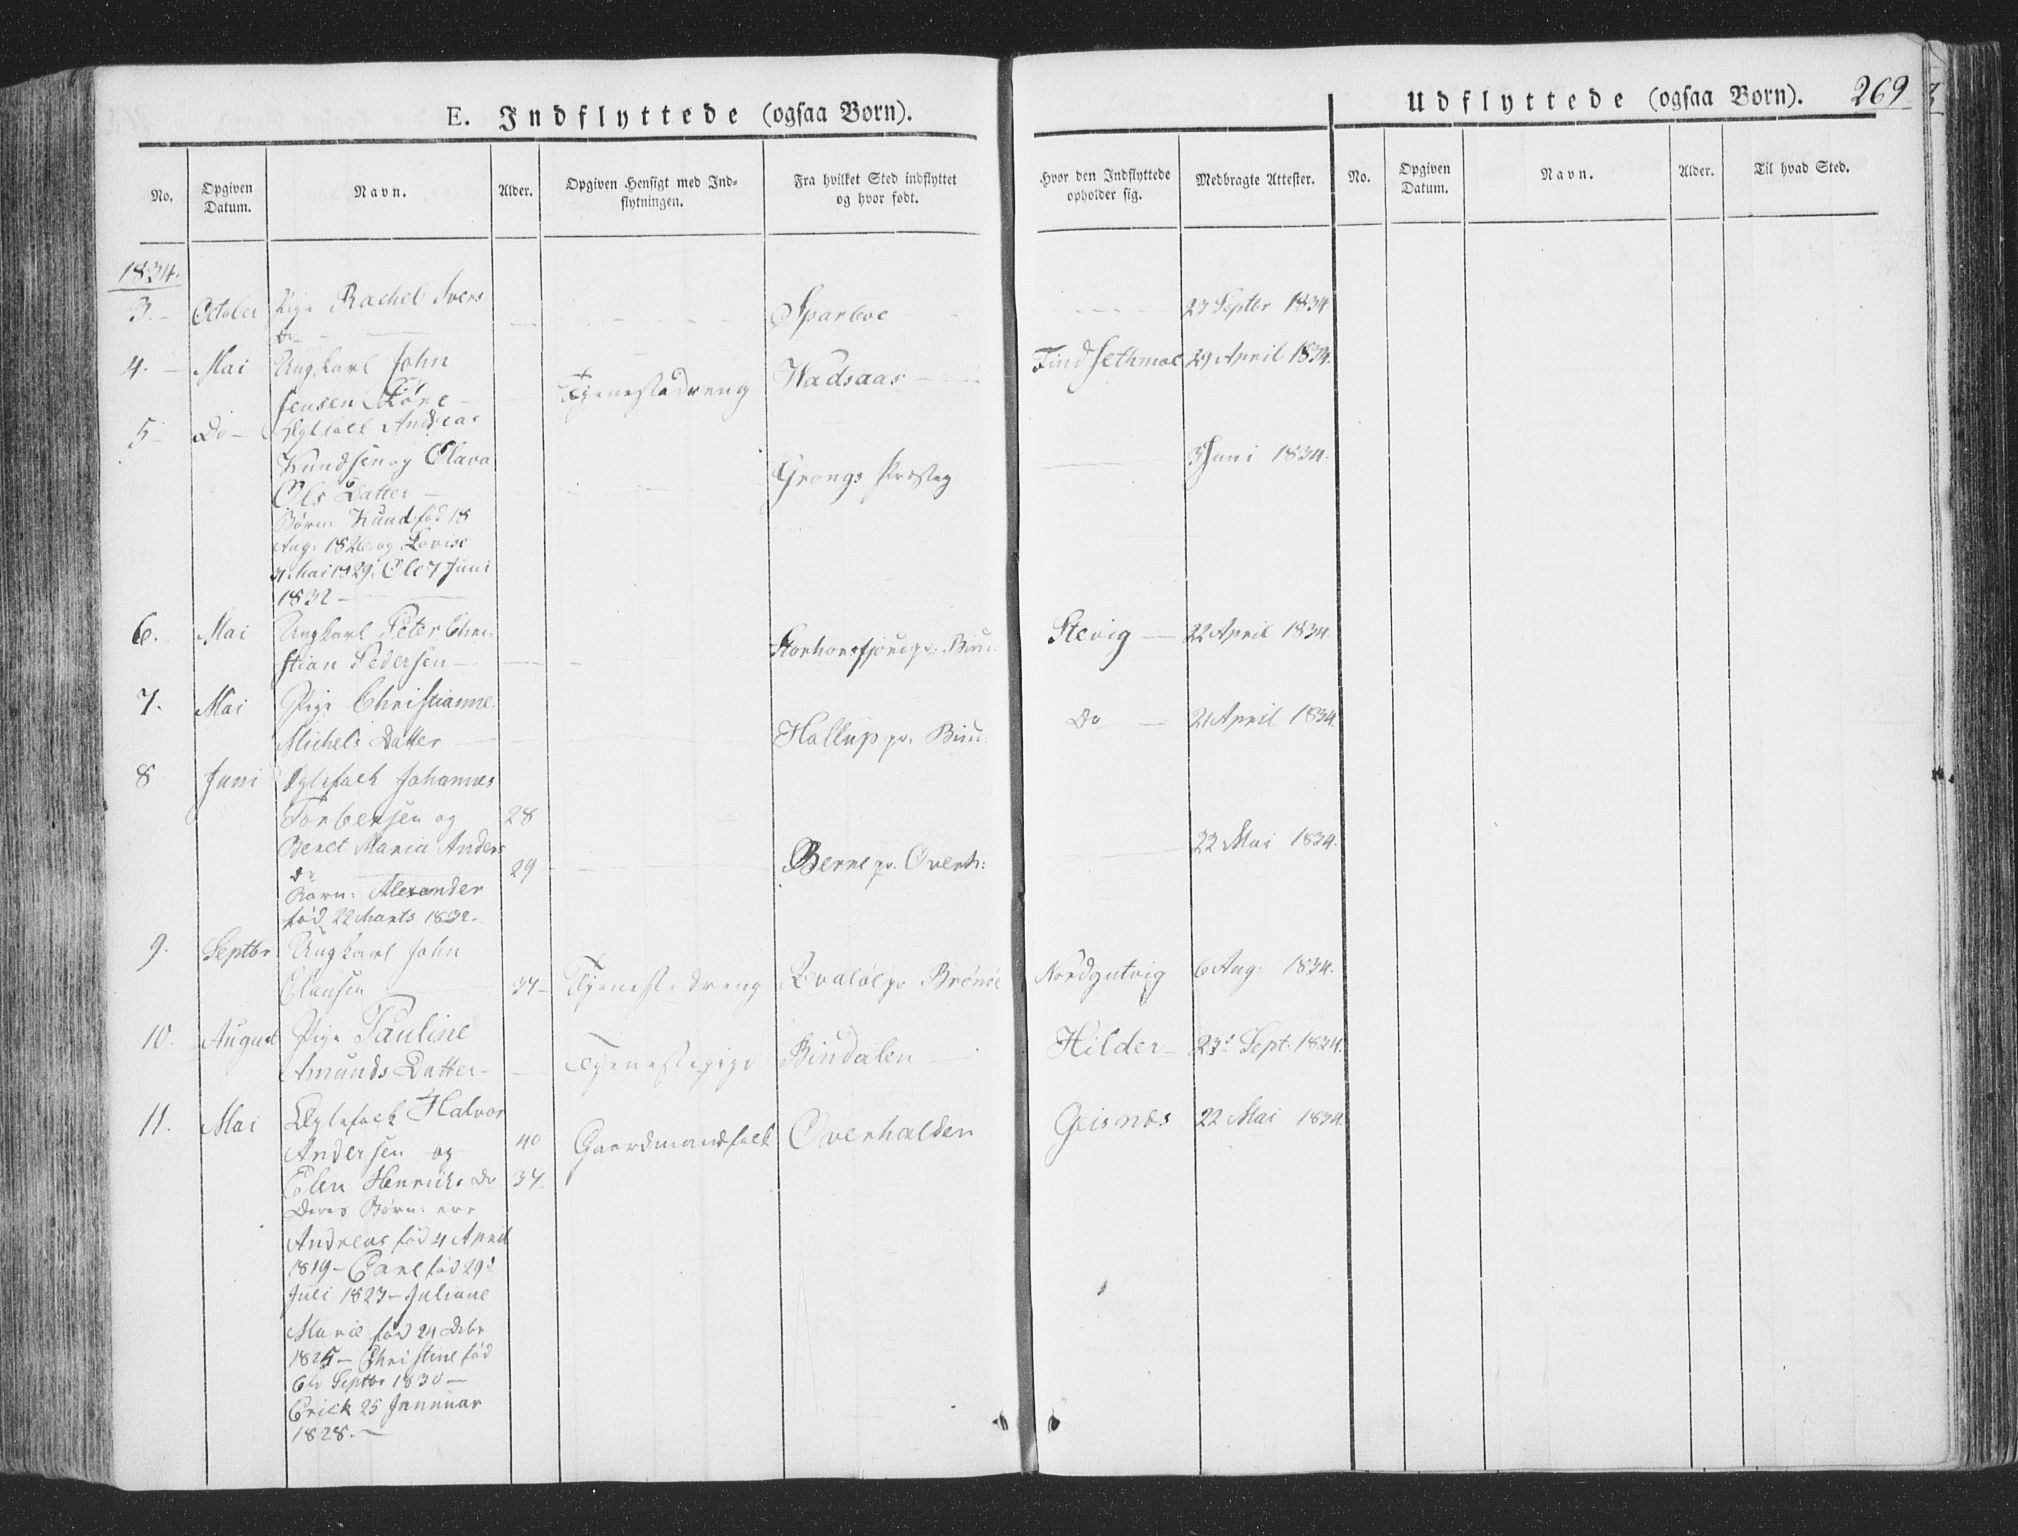 E. Indflyttede (ogsaa Børn).
Udflyttede (ogsaa Børn).
269
No.
Opgiven Datum.
Navn.
Alder.
Opgiven Hensigt med Indflytningen.
Fra hvilket Sted indflyttet og hvor født.
Hvor den Indflyttede opholder sig.
Medbragte Attester.
No.
Opgiven Datum.
Navn.
Alder.
Til hvad Sted.
1834.
3. October Pige Rachel Ivers Sparboe 23 Septbr 1834
Do
4. Mai Ungkarl John Findsethmoe 29 April 1834.
Jensen Tjenestedreng Wadsaas
5 Do Andreas
Knudsen og Olava 3 Juni 1834.
Ols Datter Grongs Præsteg
Børn: Knud fød 18
Aug: 1826 og Lovise
Mai 1829. Ole 7 Juni
1832
6. Mai Ungkarl Peter Chri- Stevig 22 April 1834.
stian Pedersen
7. Mai Pige Christianne Do 21 April 1834.
Michels Datter Hallup pr. Bin:
8 Juni Ægtefolk Johannes
Torbersen og 28
Beret Maria Anders 22 Mai 1834.
Do 29 Berne pr. Overh:
Børn: Alexander
fød 22 Marts 1832.
9. Septbr Ungkarl John Nordgutvig 6 Aug: 1834.
Clausen 34 Tjenestedreng pr Brønøe
10. August Pige Pauline Hilder 23d Sept. 1834.
Amunds Datter Tjenestepige Bindalen
11. Mai Ægtefolk Halvor Geisnæs 22 Mai 1834.
Andersen og 40 Gaardmandsfolk Overhalden
Elen Henrichs Do 34.
Deres Børn: ere
Andreas fød 4 April
1819 - Carl fød 29d
Juli 1823 - Juliane
Marie fød 24 Debr
1825 - Christine fød
6te Septbr 1830 -
Erick 25 Januuar
1828.